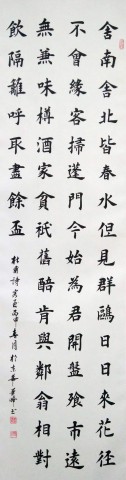 舍南舍北皆春水但見群鷗日日來花徑
不曾緣客掃蓬門今始為君開盤飧市遠
無兼味樽酒家貧衹舊醅肯與鄰翁相對
飲隔籬呼取盡餘盃
杜甫詩客至丙申春月於京華